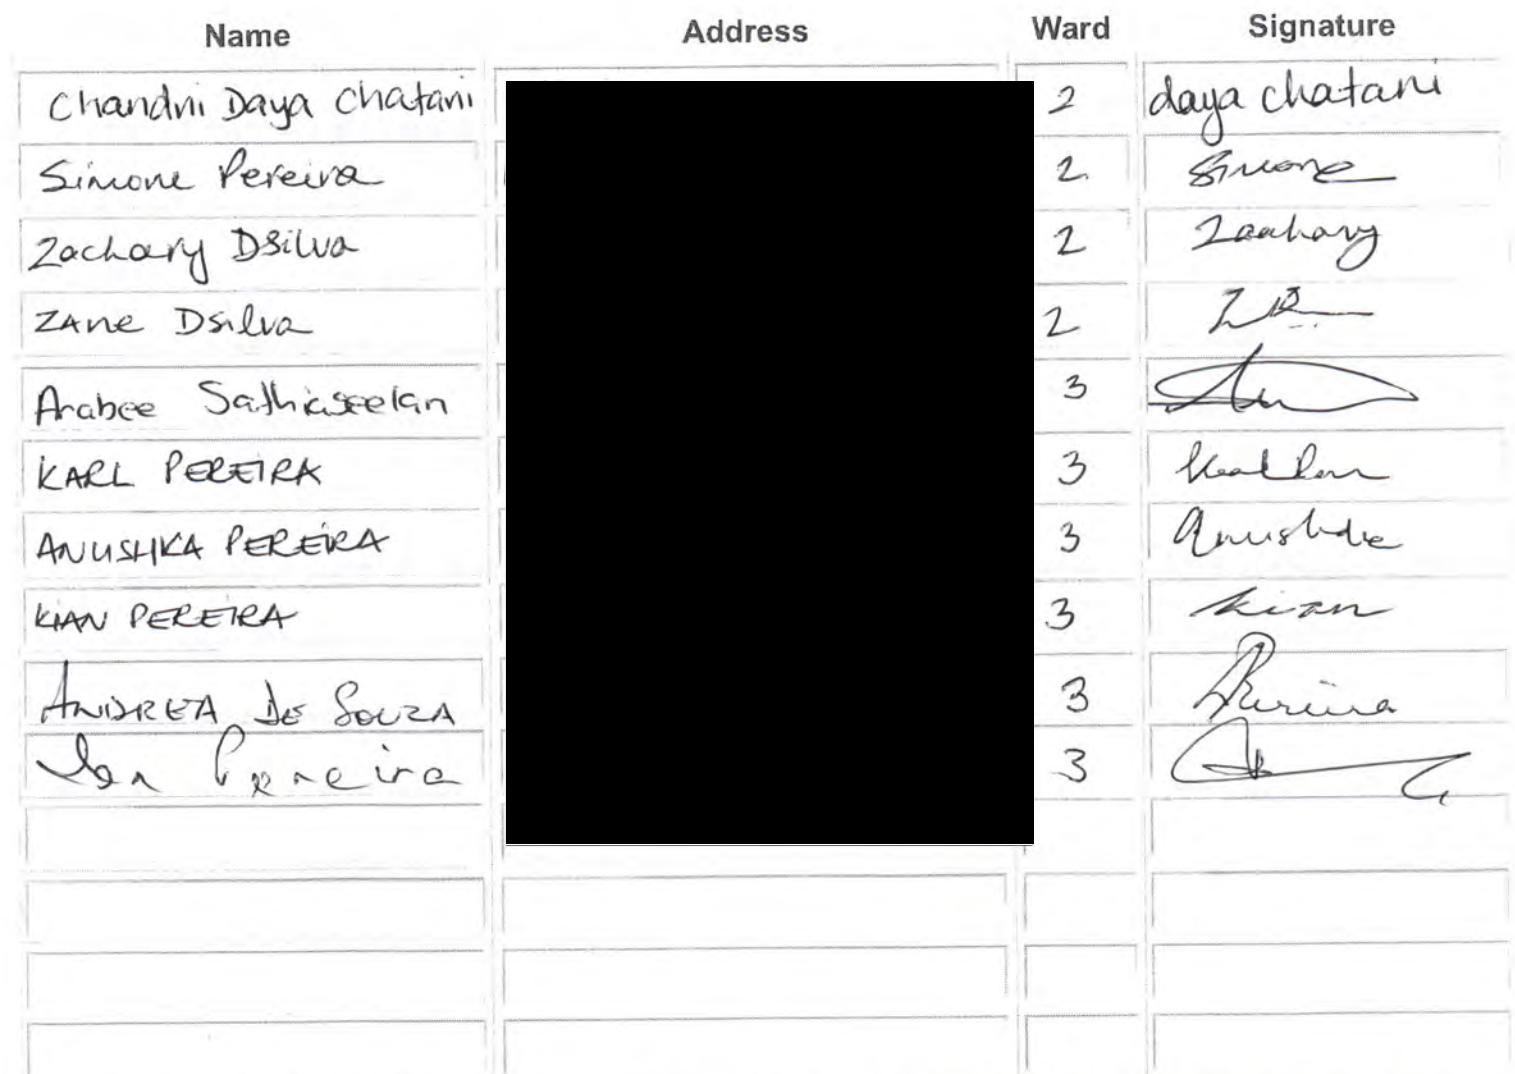 Name Address Ward Signature
Chandni Daya Chatani 2 daya chatani
Simone Pereira 2. Simone
Zachary Dsilva 2 Zachary
ZAne Dsilva 2
Arabee Sathiaseelan 3
KARL PEREIRA 3
ANUSHKA PEREIRA 3 Anushka
KIAN PEREIRA 3 Kian
ANDREA DE SOUZA 3 Pereira
Pereira 3